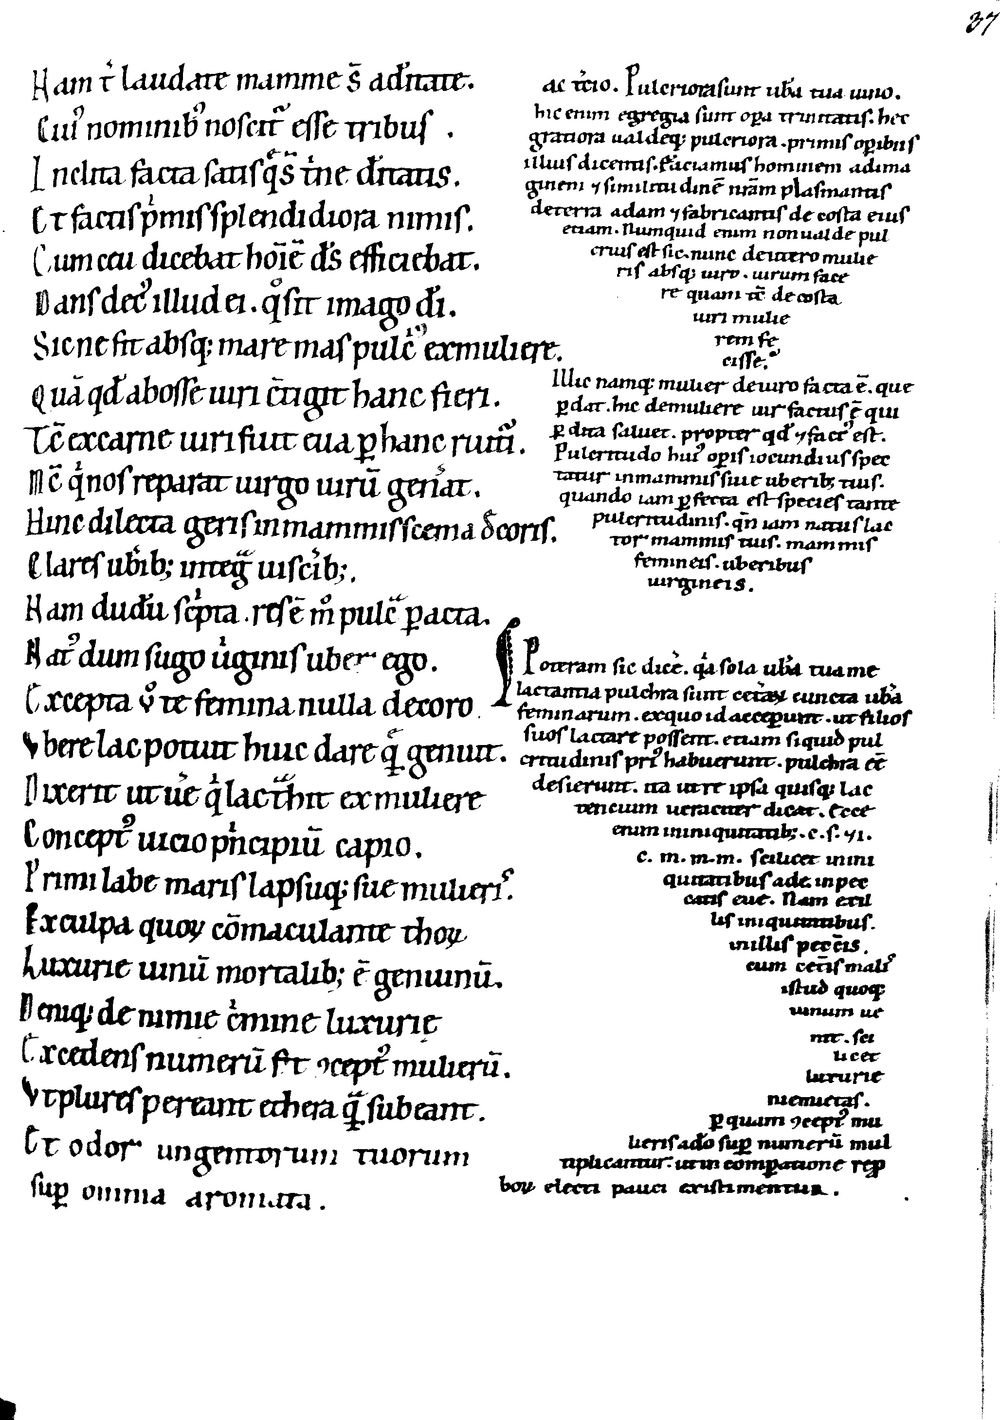 37
Nam t̉ laudate mamme s̄ aďnitate.
Cui᾽ nominib᾽ noscit᾽ esse tribus .
Inclita facta satis q̄s tⁱne ďnitatis.
Et factis pⁱmis splendidiora nimis.
Cum ceu dicebat hoīē ďs efficiebat.
Dans dec᾽ illud ei . qͦ sit imago ďi.
Sic ne fit absq; mare mas pulc᾽ ex muliere.
Quā qď ab osse uiri c̄tigit hanc fieri.
Tc̄ ex carne uiri fiut eua ꝑ hanc ruitᷓ.
Nc̄ qⁱ nos reparat uirgo uirū gen᾽at.
Hinc dilecta geris in mammis scema ďcoris.
Clares ub᾽ib; integᷓ uisc᾽ib;.
Nam dudū sc᾽pta . res ē mͦ pulcᷓ ꝑacta.
Nat᾽ dum sugo u᾽ginis uber ego.
Excepta vͦ te femina nulla decoro
Vbere lac potuit huic dare qͥ genuit.
Dixerit ut ue᾽ qⁱ lac t̄hit ex muliere
Concept᾽ uicio pⁱncipiū capio.
Primi labe maris lapsuq; sue mulieris.
Ex culpa quoꝝ cōmaculante thoꝝ
Luxurie uinū mortalib; ē genuinū.
Deniq; de nimie c᾽mine luxurie
Excedens numerū fit ꝯcept᾽ mulierū.
Vt plures pereant ethera qᷓ subeant.
Et odor ungentorum tuorum
suꝑ omnia aromata.
ac t᾽cio. Pulcriora sunt ub᾽a tua uino.
hic enim egregia sunt oꝑa trinitatis. hec
gratiora ualdeq; pulcriora. primis oꝑibus
illius dicentis. Faciamus hominem ad ima
ginem ⁊ similitudinē nr̄am plasmantis
de terra adam ⁊ fabricantis de costa eius
etiam. Numquid enim non ualde pul
crius est sic. nunc de utero mulie
ris absq; uiro. uirum face
re quam tc̄ de costa
uiri mulie
rem fe
cisse.
Illic namq; mulier de uiro facta ē. que
ꝑdat. hic de muliere uir factus ē qui
ꝑdita saluet. propter qď ⁊ fact᾽ est.
Pulcritudo hui᾽ oꝑis iocundius spec
tatur in mammis siue uberib; tuis.
quando iam ꝑfecta est species tante
pulcritudinis. qn̄ iam natus lac
tor mammis tuis. mammis
femineis. uberibus
uirgineis.
Poteram sic dice᾽. qⁱa sola ub᾽a tua me
lactantia pulchra sunt cet᾽aꝝ cuncta ub᾽a
feminarum. ex quo id acceperunt. ut filios
suos lactare possent. etiam si quid pul
critudinis pri᾽ habuerunt. pulchra eē
desierunt. ita ut re ipsa quisq; lac
tencium ueraciter dicat. Ecce
enim in iniquitatib;. c. s. ⁊ i.
c. m. m. m. scilicet in ini
quitatibus ade. in pec
catis eue. Nam etil
lis iniquitatibus.
in illis pecc̄is.
cum cet᾽is malis᾽
istud quoq;
uinum ue
nit. sci
licet
luxurie
niemietas.
ꝑ quam ꝯcept᾽ mu
lieris ado suꝑ numerū mul
tiplicantur. ut in comꝑatione reꝑ
boꝝ electi pauci existimentur.